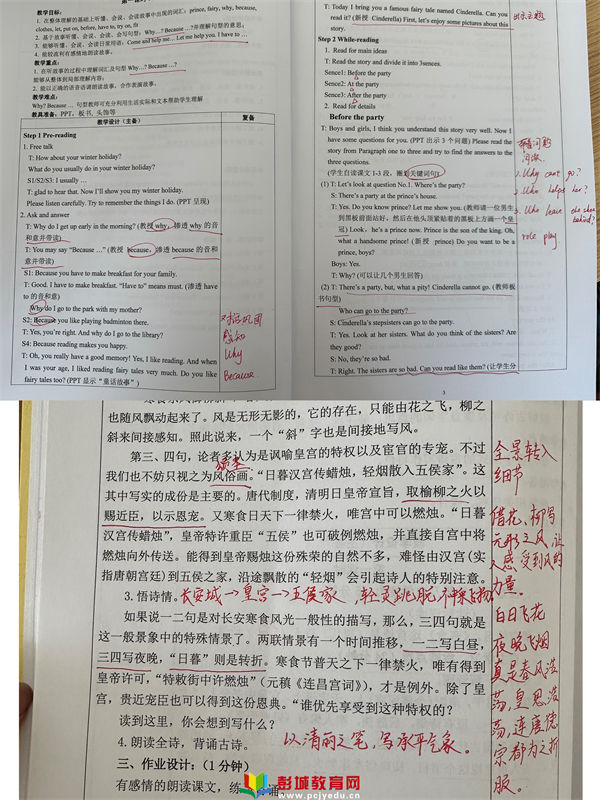 教学目标:
1. 在整体理解的基础上听懂、会议、会读故事中出现的词汇: prince, fairy, why, because,
clothes, let, put on, before, have to, try on, fit
2. 基于故事听懂、会议、会读、会写句型: Why…? Because …?并理解句型的意思;
3. 能够听懂、会议、会读日常用语: Come and help me… Let me help you. I have to …
4. 能较流利有感情地朗读故事。
教学重点:
1. 在听故事的过程中理解词汇及句型 Why…? Because …?
能够从整体到局部理解内容;
2. 能以正确的语音语调朗读故事, 合作表演故事。
教学难点:
Why? Because … 句型教师可充分利用生活实际和文本帮助学生理解
教具准备: PPT, 板书, 头饰等
教学设计(主备) 复备
Step 1 Pre-reading
1. Free talk
T: How about your winter holiday?
What do you usually do in your winter holiday?
S1/S2/S3: I usually …
T: glad to hear that. Now I'll show you my winter holiday.
Please listen carefully. Try to remember the things I do. (PPT 呈现)
2. Ask and answer
T: Why do I get up early in the morning? (教授 why, 渗透 why 的音
和意并带读)
T: You may say "Because …" (教授 because, 渗透 because 的音和
意并带读)
S1: Because you have to make breakfast for your family.
T: Good. I have to make breakfast. "Have to" means must. (渗透 have
to 的音和意)
Why do I go to the park with my mother?
S2: Because you like playing badminton there.
T: Yes, you're right. And why do I go to the library?
S4: Because reading makes you happy.
T: Oh, you really have a good memory! Yes, I like reading. And when
I was your age, I liked reading fairy tales very much. Do you like
fairy tales too? (PPT 显示"童话故事")
感知
Why
Because
T: Today I bring you a famous fairy tale named Cinderella. Can you
read it? (新授 Cinderella) First, let's enjoy some pictures about this
story.
出示主题
Step 2 While-reading
1. Read for main ideas
T: Read the story and divide it into 3sences.
Sence1: Before the party
Sence2: At the party
Sence3: After the party
2. Read for details
Before the party
T: Boys and girls, I think you understand this story very well. Now I
have some questions for you. (PPT 出示 3 个问题) Please read the
story from Paragraph one to three and try to find the answers to the
three questions.
(学生自读课文 1-3 段, 圈划关键词句)
(1) T: Let's look at question No.1. Where's the party?
S: There's a party at the prince's house.
T: Yes. Do you know prince? Let me show you. (教师请一位男生
到黑板前面站好, 然后在他头顶紧贴着的黑板上方画一个皇
冠) Look, he's a prince now. Prince is the son of the king. Oh,
what a handsome prince! (新授 prince) Do you want to be a
prince, boys?
Boys: Yes.
T: Why? (可以让几个男生回答)
(2) T: There's a party, but, what a pity! Cinderella cannot go. (教师板
书句型)
Who can go to the party?
S: Cinderella's stepsisters can go to the party.
T: Yes. Look at her sisters. What do you think of the sisters? Are
they good?
S: No, they're so bad.
T: Right. The sisters are so bad. Can you read like them? (让学生分
Why can't go?
Who helps her?
role play.
3
也随风飘动起来了。风是无形无影的, 它的存在, 只能由花之飞, 柳之
斜来间接感知。照此说来, 一个"斜"字也是间接地写风。
第三、四句, 论者多认为是讽喻皇宫的特权以及宦官的专宠。不过
我们也不妨只视之为风俗画。"日暮汉宫传蜡烛, 轻烟散入五侯家"。这
其中写实的成份是主要的。唐代制度, 清明日皇帝宣旨, 取榆柳之火以
赐近臣, 以示恩宠。又寒食日天下一律禁火, 唯宫中可以燃烛。"日暮
汉宫传蜡烛", 皇帝特许重臣"五侯"也可破例燃烛, 并直接自宫中将
燃烛向外传送。能得到皇帝赐烛这份殊荣的自然不多, 难怪由汉宫(实
指唐朝宫廷)到五侯之家, 沿途飘散的"轻烟"会引起诗人的特别注意。
3. 悟诗情。长安城→皇宫→五侯家, 轻灵跳脱
如果说一二句是对长安寒食风光一般性的描写, 那么, 三四句就是
这一般景象中的特殊情景了。两联情景有一个时间推移, 一二写白昼,
三四写夜晚, "日暮"则是转折。寒食节普天之下一律禁火, 唯有得到
皇帝许可, "特敕街中许燃烛"(元稹《连昌宫词》), 才是例外。除了皇
宫, 贵近宠臣也可以得到这份恩典。"谁优先享受到这种特权的?
读到这里, 你会想到写什么?
4. 朗读全诗, 背诵古诗。 以清丽之笔, 写承平气象。
三、作业设计: (1 分钟)
有感情的朗读课文, 练
全景转入
细节
借花、柳写
无形之风, 让
人感受到风的
力量。
白日飞花
夜晚飞烟
真是春风浩
荡, 皇恩浩
荡, 连唐德
宗都为之折
服。
彭城教育网
www.pcjyedu.cn